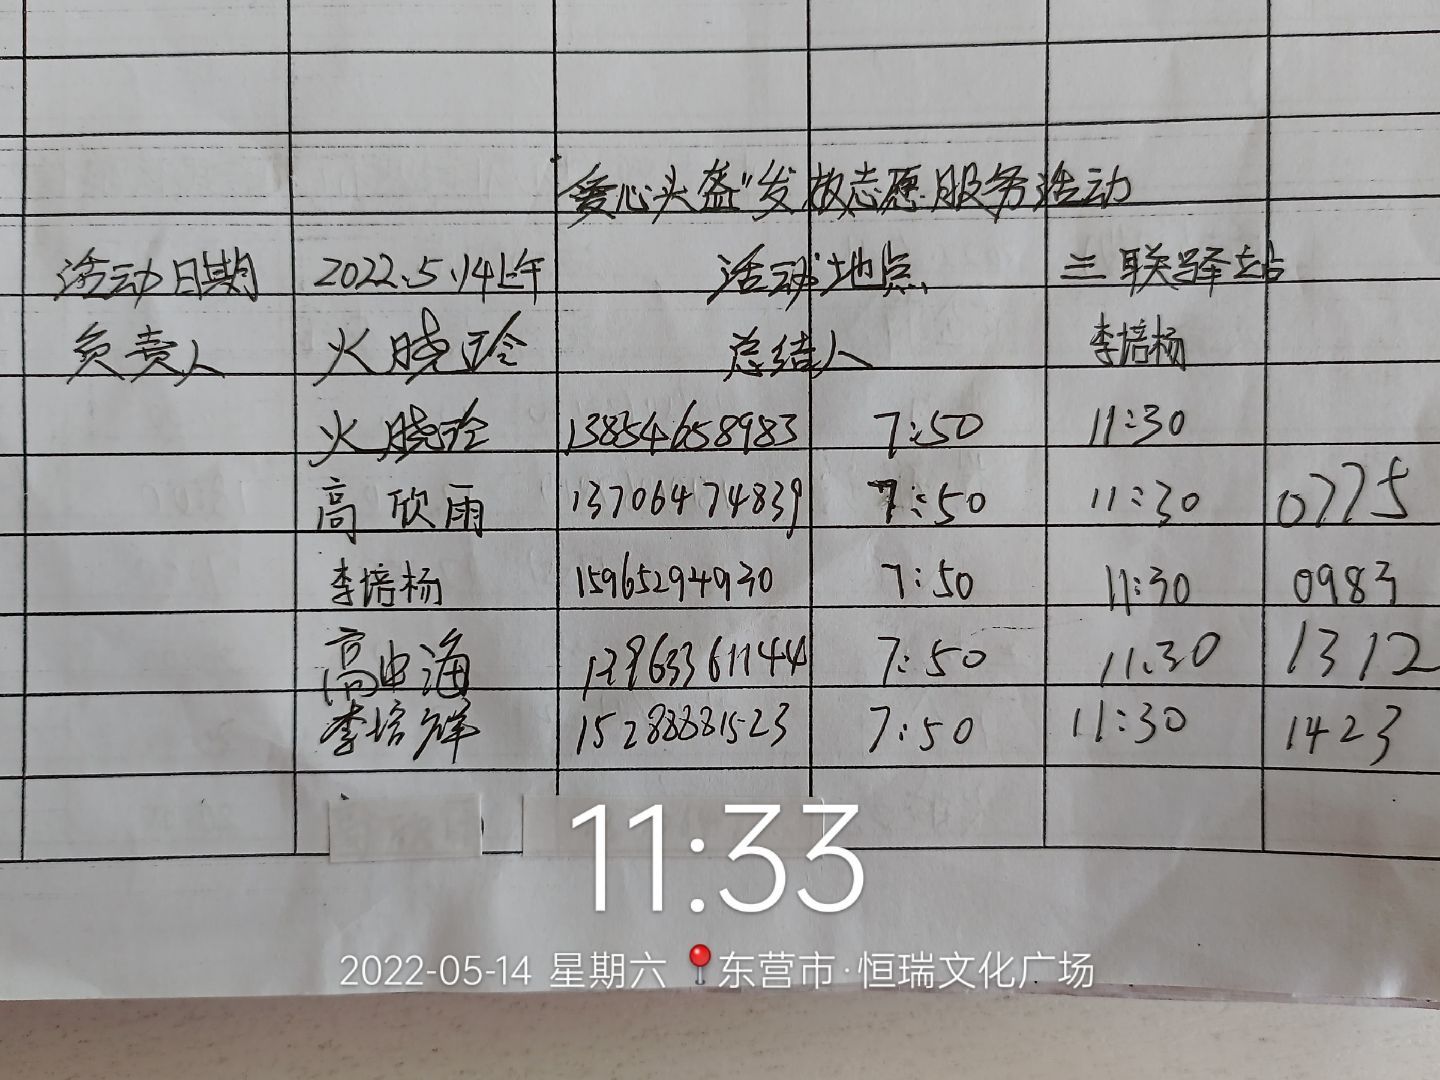 爱心头盔"发放志愿服务活动
活动日期 2022.5.14上午 活动地点 三联驿站
负责人 火晓玲 总结人 李培杨
火晓玲 13854658983 7:50 11:30
高欣雨 13706474839 7:50 11:30 0775
李培杨 15965294930 7:50 11:30 0983
高申海 7:50 11:30 1312
李培 15288881523 7:50 11:30 1423
11:33
2022-05-14 星期六 东营市·恒瑞文化广场